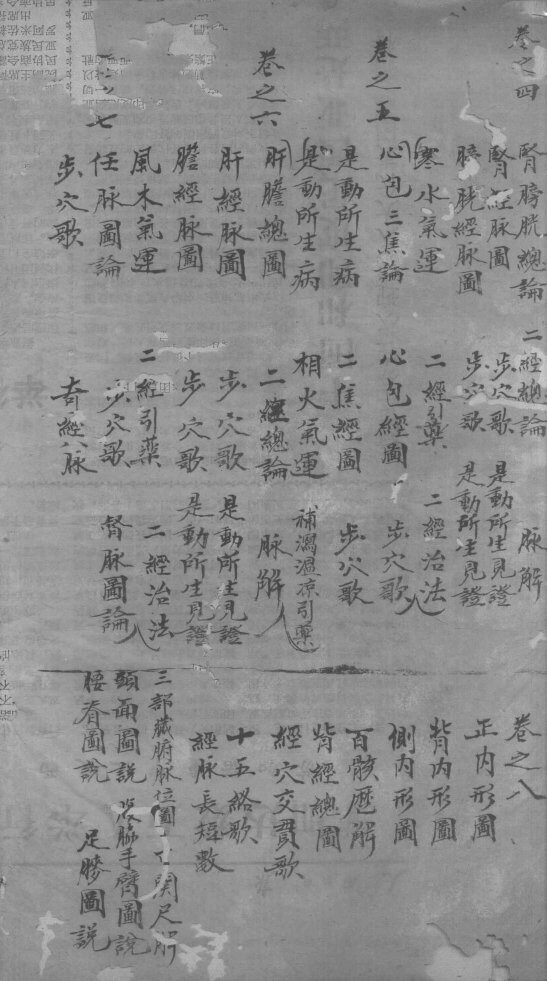 卷之四
腎膀胱總論 二經總論 脉解
腎經脉圖 步穴歌 是動所生見證
膀胱經脉圖 步穴歌 是動所生見證
寒水氣運 二經引藥 二經治法
卷之五
心包三焦論 心包經圖 步穴歌
是動所生病 二焦經圖 步穴歌
是動所生病 相火氣運 補瀉温凉引藥
卷之六
肝膽總圖 二經總論 脉解
肝經脉圖 步穴歌 是動所生見證
膽經脉圖 步穴歌 是動所生見證
風木氣運 二經引藥 二經治法
之七
任脉圖論 步穴歌 督脉圖論
步穴歌 奇經八脉
卷之八
正内形圖
背内形圖
側内形圖
百骸歷解
背經總圖
經穴交貫歌
十五絡歌
經脉長短數
三部臟腑脉位圖 寸関尺解
頭面圖説 脇手臂圖說
腰脊圖説 足膝圖説